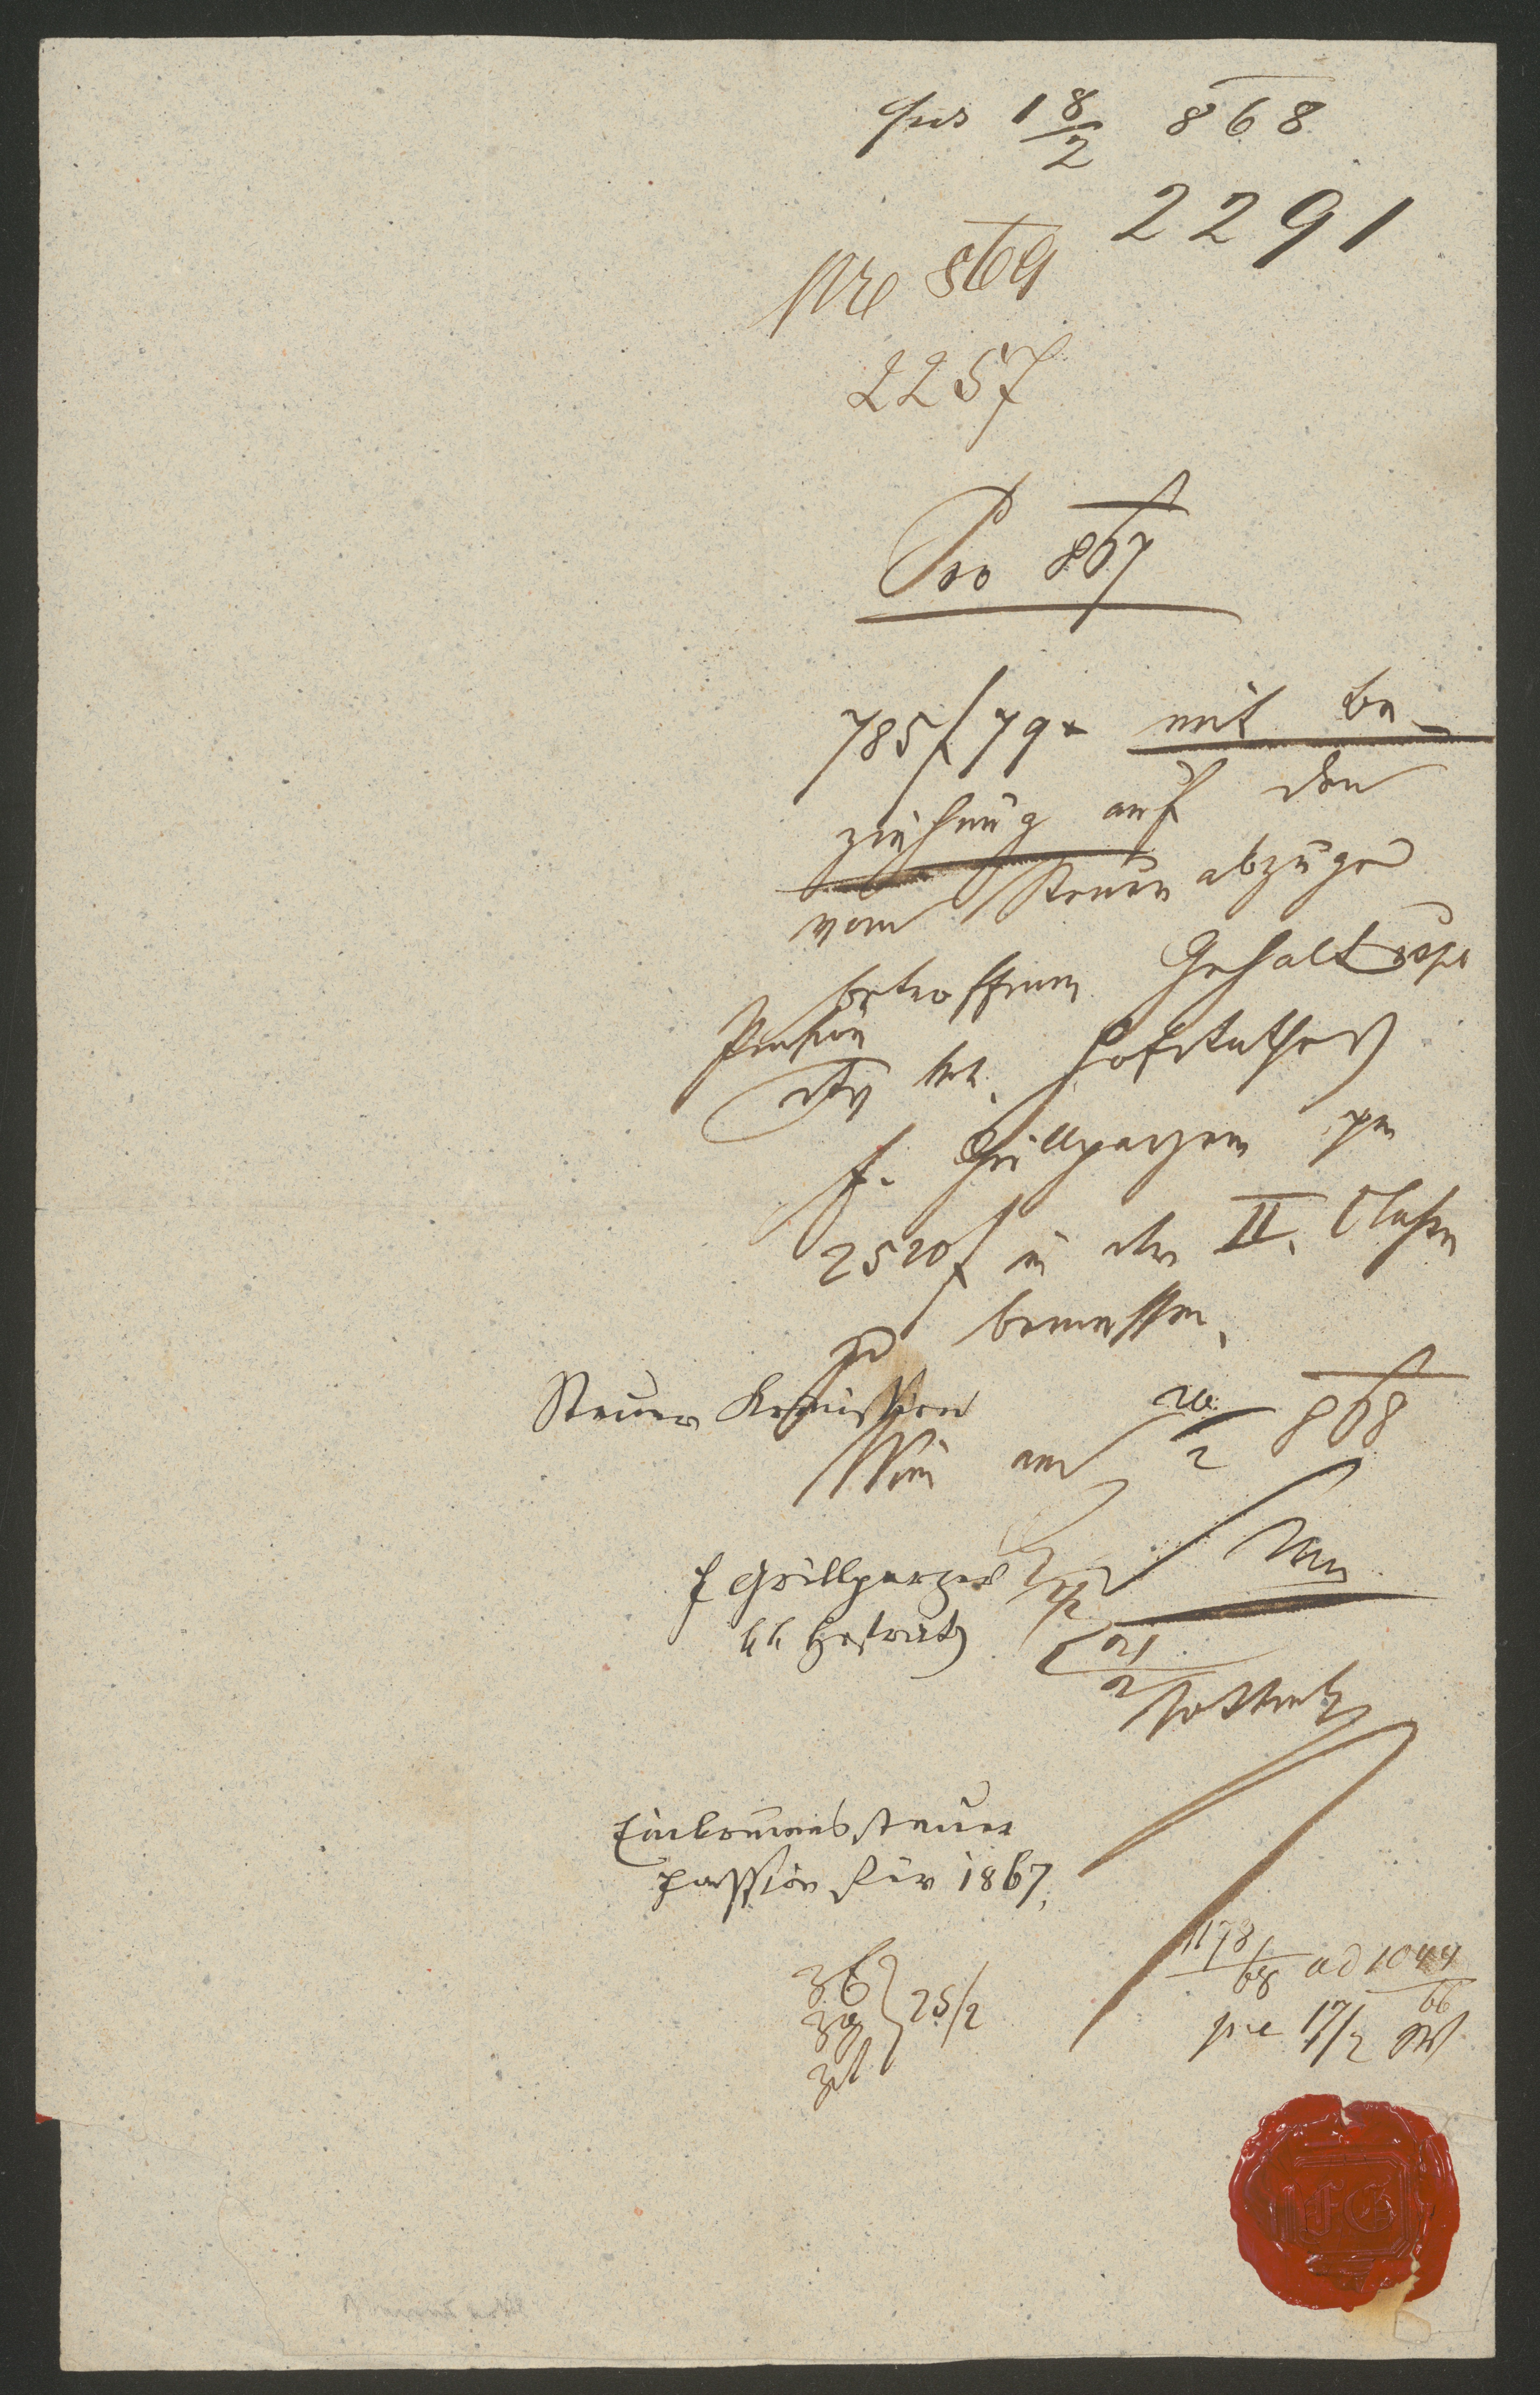 18/2 868
2291
Nro 869
2257
Pro 867
785 f 79 x mit Be-
ziehung auf den
vom Steuerabzuge
betroffenen Gehalt resp
Pension
des kk. Hofrathes
F. Grillparzer per
2520 f in der II. Classe
zu bemessen.
Steuer Komission
Wien am 20/2 868
F Grillparzer
kk Hofrath
21/2
Einkommensteuer
fassion für 1867.
25/2
1178/68 ad 1044/66
pre 17/2
FG